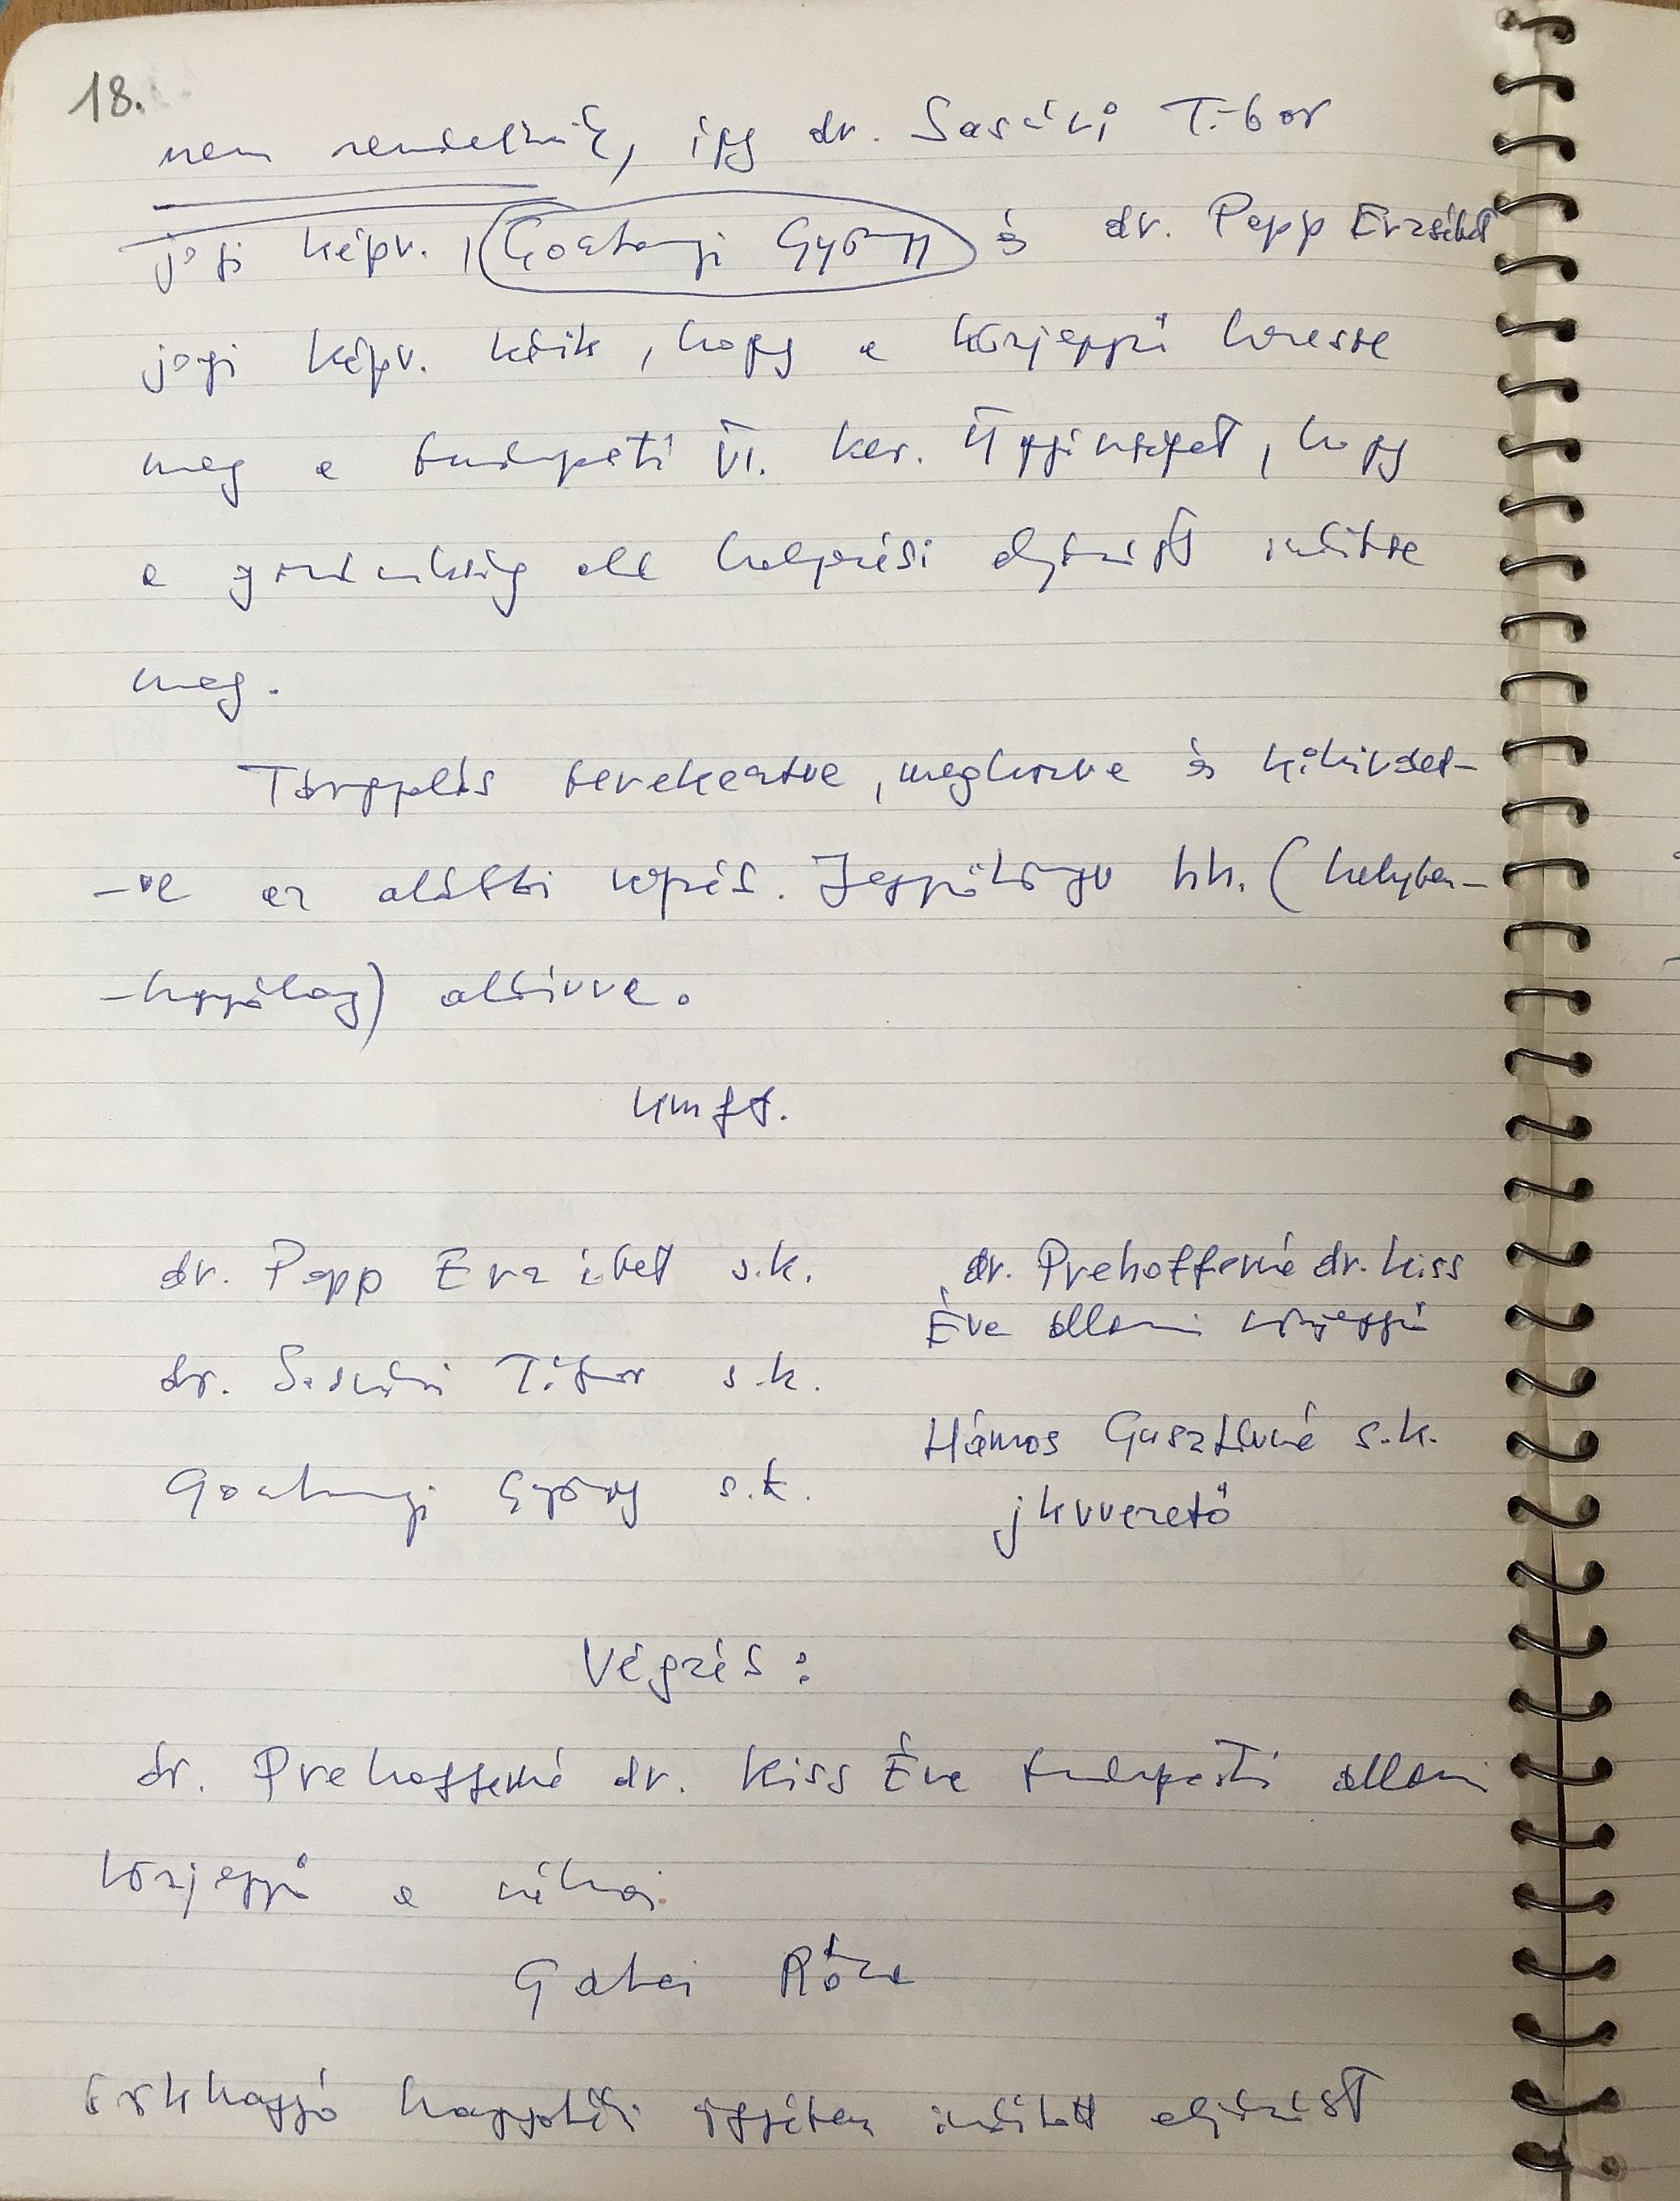 18.
nem rendelkezik, így dr. Sasvári Tibor
jogi képv., György és dr. Papp Erzsébet
jogi képv. kérik, hogy a közjegyző keresse
meg a budapesti VI. ker. Ügyészséget, hogy
a gondnokság alá helyezési eljárást indítsa
meg.
Tárgyalás berekesztve, meghozva és kihirdet-
-ve az alábbi végzés. Jegyzőkönyv hh. (helyben-
-hagyólag) aláírva.
Kmft.
dr. Papp Erzsébet s.k.
dr. Sasvári Tibor s.k.
György s.k.
dr. Prehofferné dr. Kiss
Éva állami közjegyző
Hámos Gusztávné s.k.
jkvvezető
Végzés:
dr. Prehofferné dr. Kiss Éva budapesti állami
közjegyző a néhai
Róza
örökhagyó hagyatéki ügyében indított eljárást